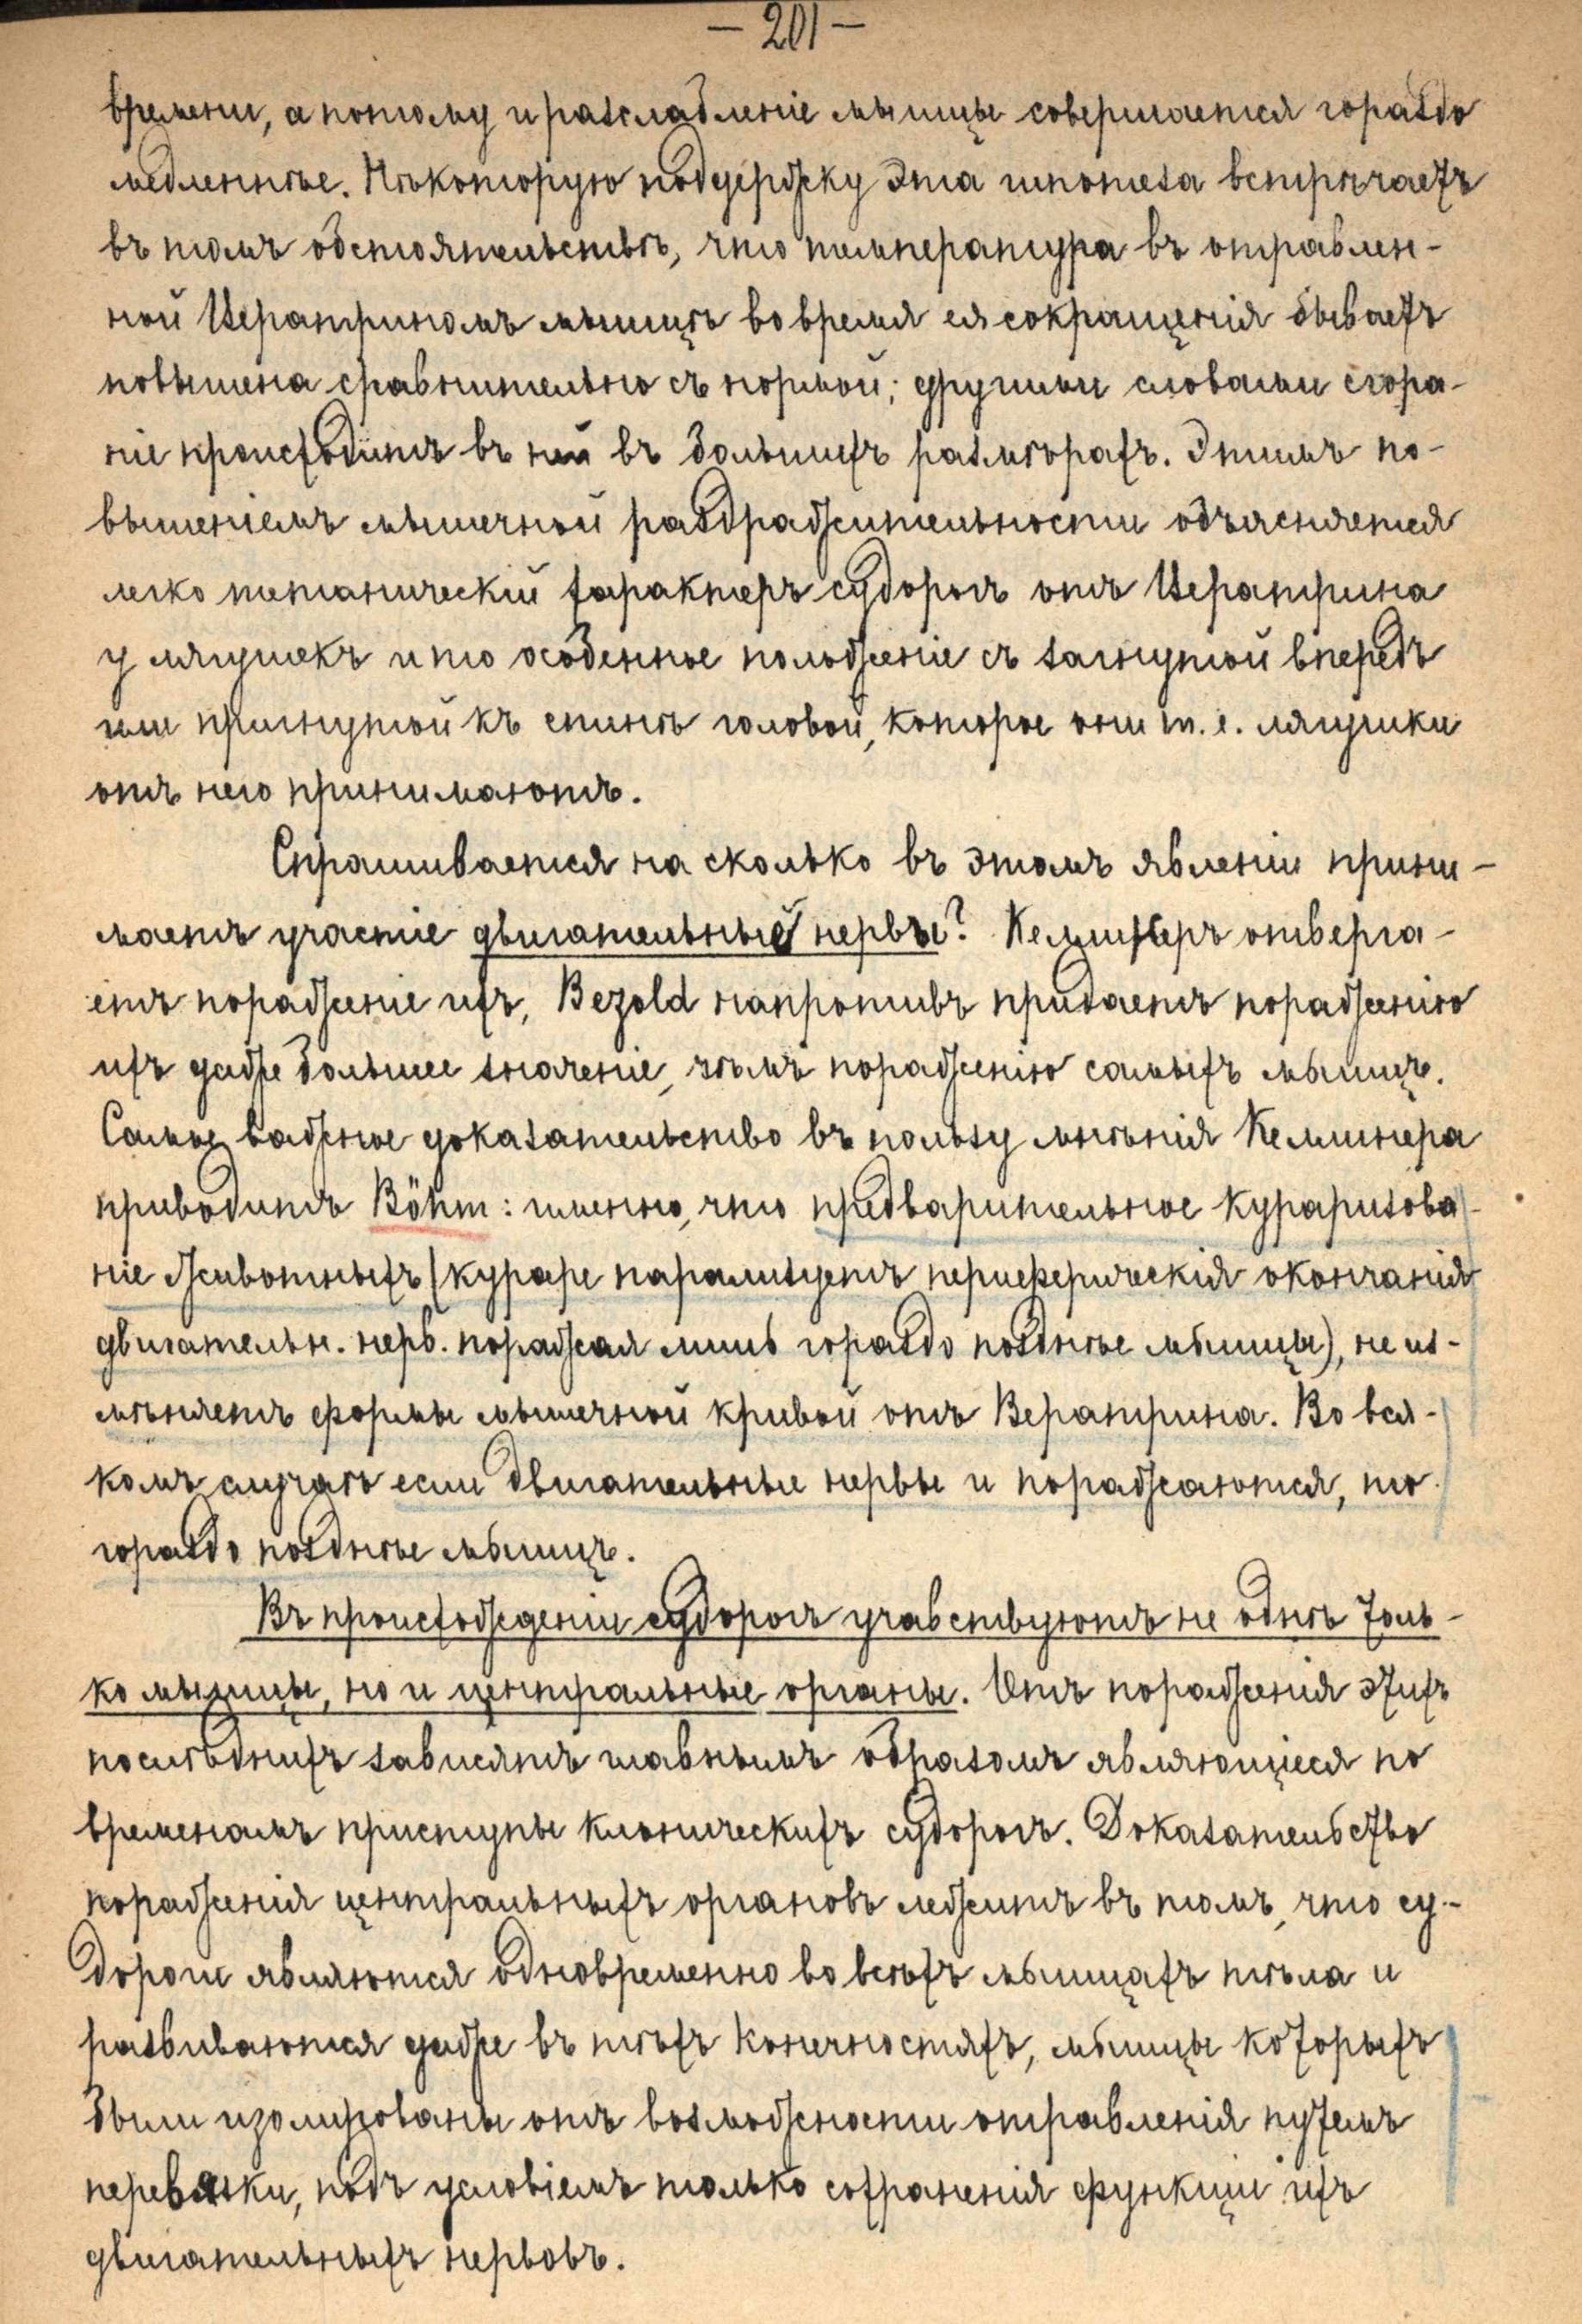 — 201 —
времени, а потому и разслабленіе мышцы совершается гораздо
медленнѣе. Нѣкоторую поддержку эта гипотеза встрѣчаетъ
въ томъ обстоятельствѣ, что температура въ отравлен-
ной Вератриномъ мышцѣ во время ея сокращенія бываетъ
повышена сравнительно съ нормой; другими словами сгора-
ніе происходитъ въ ней въ большихъ размѣрахъ. Этимъ по-
вышеніемъ мышечной раздражительности объясняется
легко тетаническій характеръ судорогъ отъ Вератрина
у лягушекъ и то особенное положеніе съ загнутой впередъ
или пригнутой къ спинѣ головой, которое они т. е. лягушки
отъ него принимаютъ.
Спрашивается на сколько въ этомъ явленіи прини-
маетъ участіе двигательные нервы? Келликеръ отверга-
етъ пораженіе ихъ, Bezold напротивъ придаетъ пораженію
ихъ даже большее значеніе, чѣмъ пораженію самыхъ мышцъ.
Самое важное доказательство въ пользу мнѣнія Келликера
приводитъ Böhm: именно, что предварительное кураризова-
ніе животныхъ (кураре парализуетъ периферическія окончанія
двигательн. нерв. поражая лишь гораздо позднѣе мышцы), не из-
мѣняетъ формы мышечной кривой отъ Вератрина. Во вся-
комъ случаѣ если двигательные нервы и поражаются, то
гораздо позднѣе мышцъ.
Въ происхожденіи судорогъ учавствуютъ не однѣ толь-
ко мышцы, но и центральные органы. Отъ пораженія этихъ
послѣднихъ зависятъ главнымъ образомъ являющіеся по
временамъ приступы клоническихъ судорогъ. Доказательство
пораженія центральныхъ органовъ лежитъ въ томъ, что су-
дороги являются одновременно во всѣхъ мышцахъ тѣла и
развиваются даже въ тѣхъ конечностяхъ, мышцы которыхъ
были изолированы отъ возможности отравленія путемъ
перевязки, подъ условіемъ только сохраненія функціи ихъ
двигательныхъ нервовъ.